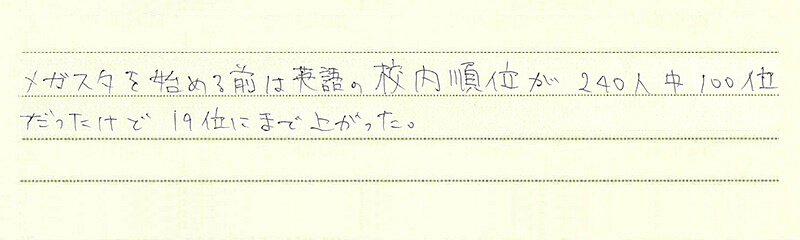 メガスタを始める前は英語の校内順位が240人中100位
だったけど19位にまで上がった。